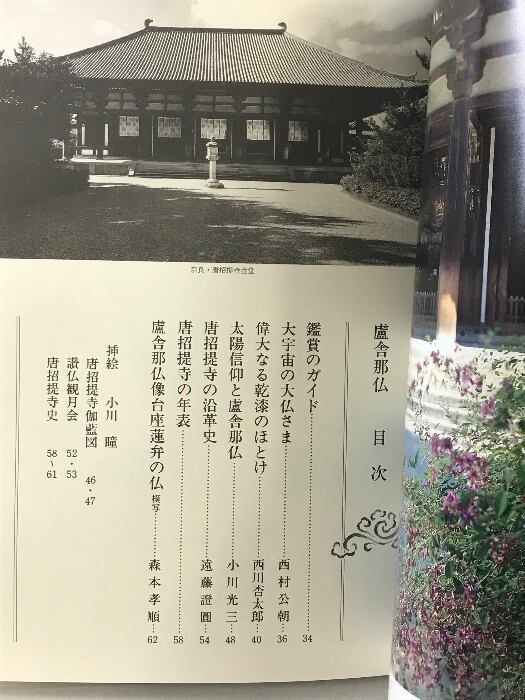 奈良・唐招提寺金堂
盧舎那仏 目次
鑑賞のガイド……34
大宇宙の大仏さま……西村公朝…36
偉大なる乾漆のほとけ……西川杏太郎…40
太陽信仰と盧舎那仏……小川光三…48
唐招提寺の沿革史……遠藤證圓…54
唐招提寺の年表……58
盧舎那仏像台座蓮弁の仏 模写……森本孝順…62
挿絵 小川 瞳
唐招提寺伽藍図 46・47
讃仏観月会 52・53
唐招提寺史 58〜61